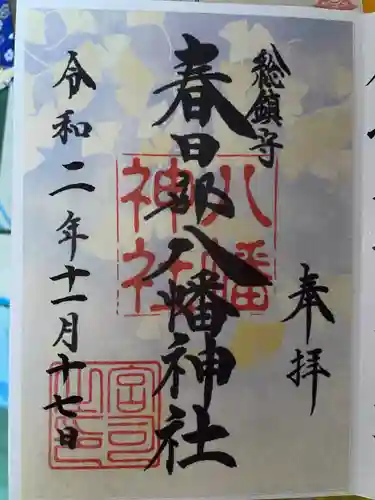 奉拝
総鎮守
春日部八幡神社
八幡
神社
令和二年十一月十七日
宮司之印